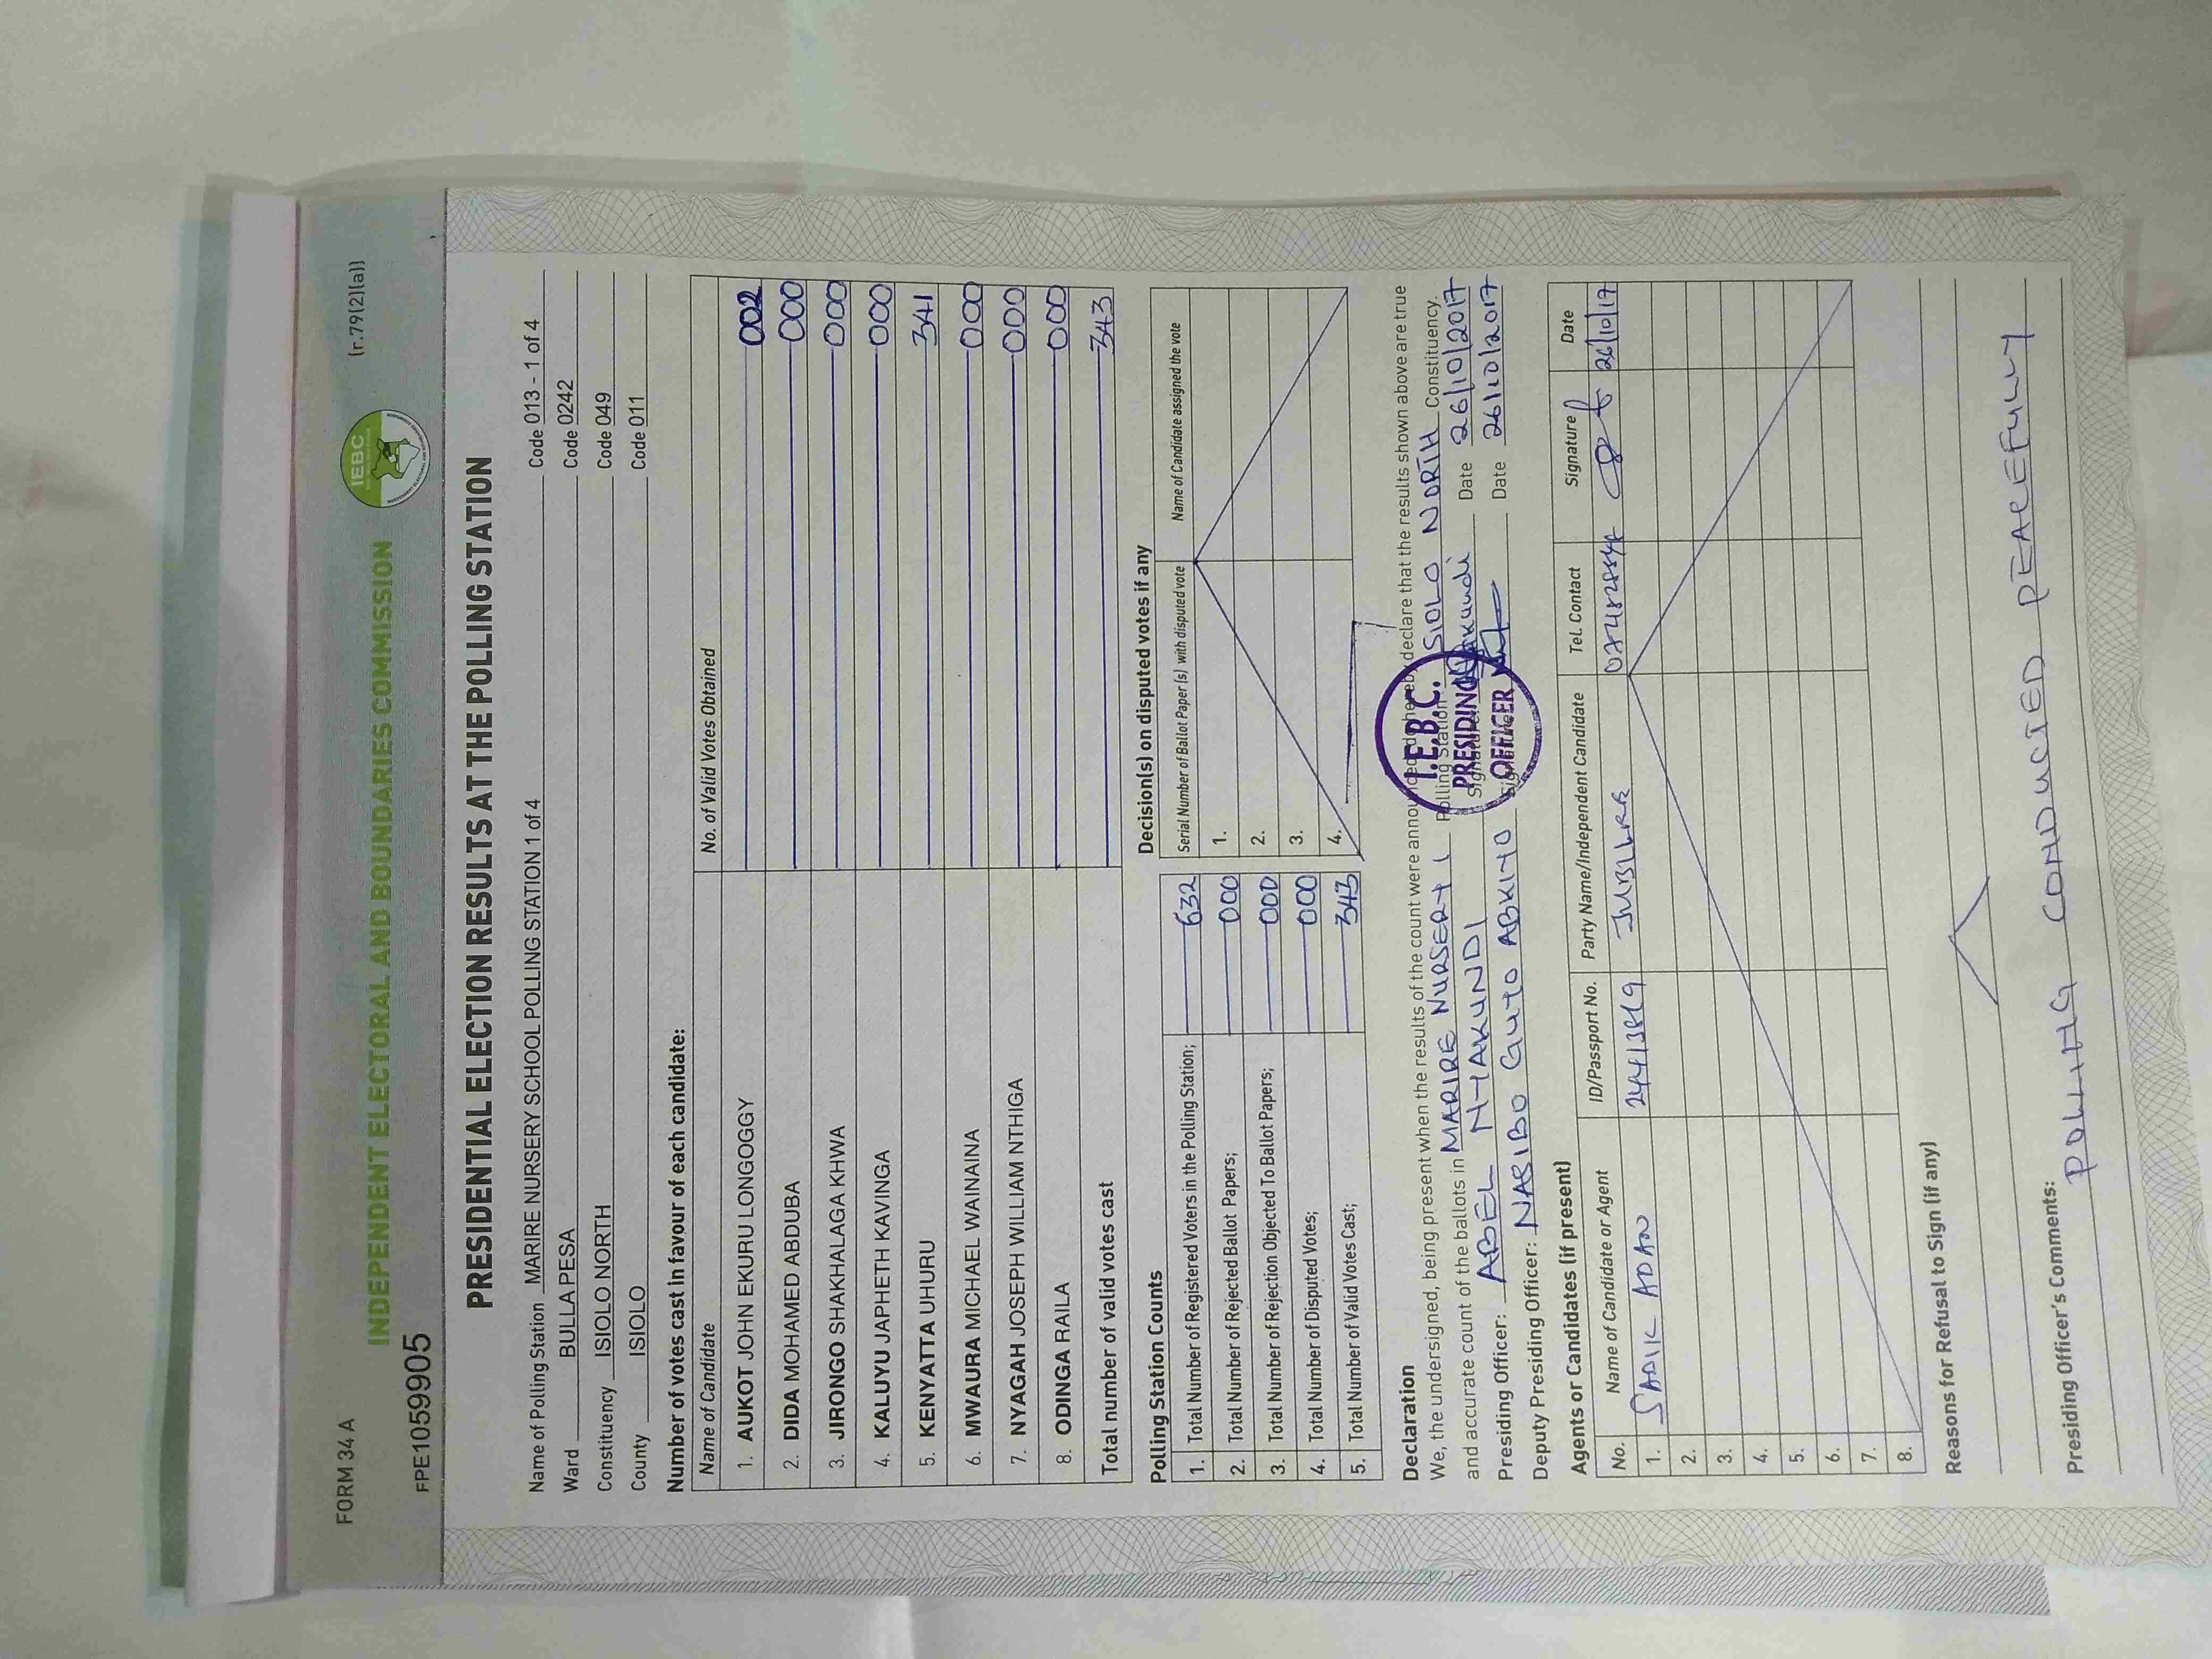 FORM 34 A
(r.79(2)(a))
IEBC
INDEPENDENT ELECTORAL AND BOUNDARIES COMMISSION
FPE1059905
PRESIDENTIAL ELECTION RESULTS AT THE POLLING STATION
Name of Polling Station MARIRE NURSERY SCHOOL POLLING STATION 1 of 4 Code 013 - 1 of 4
Ward BULLA PESA Code 0242
Constituency ISIOLO NORTH Code 049
County ISIOLO Code 011
Number of votes cast in favour of each candidate:
Name of Candidate No. of Valid Votes Obtained
1. AUKOT JOHN EKURU LONGOGGY 002
2. DIDA MOHAMED ABDUBA 000
3. JIRONGO SHAKHALAGA KHWA 000
4. KALUYU JAPHETH KAVINGA 000
5. KENYATTA UHURU 341
6. MWAURA MICHAEL WAINAINA 000
7. NYAGAH JOSEPH WILLIAM NTHIGA 000
8. ODINGA RAILA 000
Total number of valid votes cast 343
Polling Station Counts
1. Total Number of Registered Voters in the Polling Station; 632
2. Total Number of Rejected Ballot Papers; 000
3. Total Number of Rejection Objected To Ballot Papers; 000
4. Total Number of Disputed Votes; 000
5. Total Number of Valid Votes Cast; 343
Decision(s) on disputed votes if any
Serial Number of Ballot Paper (s) with disputed vote Name of Candidate assigned the vote
1.
2.
3.
4.
Declaration
We, the undersigned, being present when the results of the count were announced do hereby declare that the results shown above are true
and accurate count of the ballots in MARIRE NURSERY 1 Polling Station ISIOLO NORTH Constituency.
Presiding Officer: ABEL NYAKUNDI Signature Date 26/10/2017
Deputy Presiding Officer: NASIBO GUYO ABKIYO Signature Date 26/10/2017
I.E.B.C.
PRESIDING
OFFICER
Agents or Candidates (if present)
No. Name of Candidate or Agent ID/Passport No. Party Name/Independent Candidate Tel. Contact Signature Date
1. SADIK ADAN JUBILEE 26/10/17
2.
3.
4.
5.
6.
7.
8.
Reasons for Refusal to Sign (if any)
Presiding Officer's Comments:
POLLING CONDUCTED PEACEFULLY